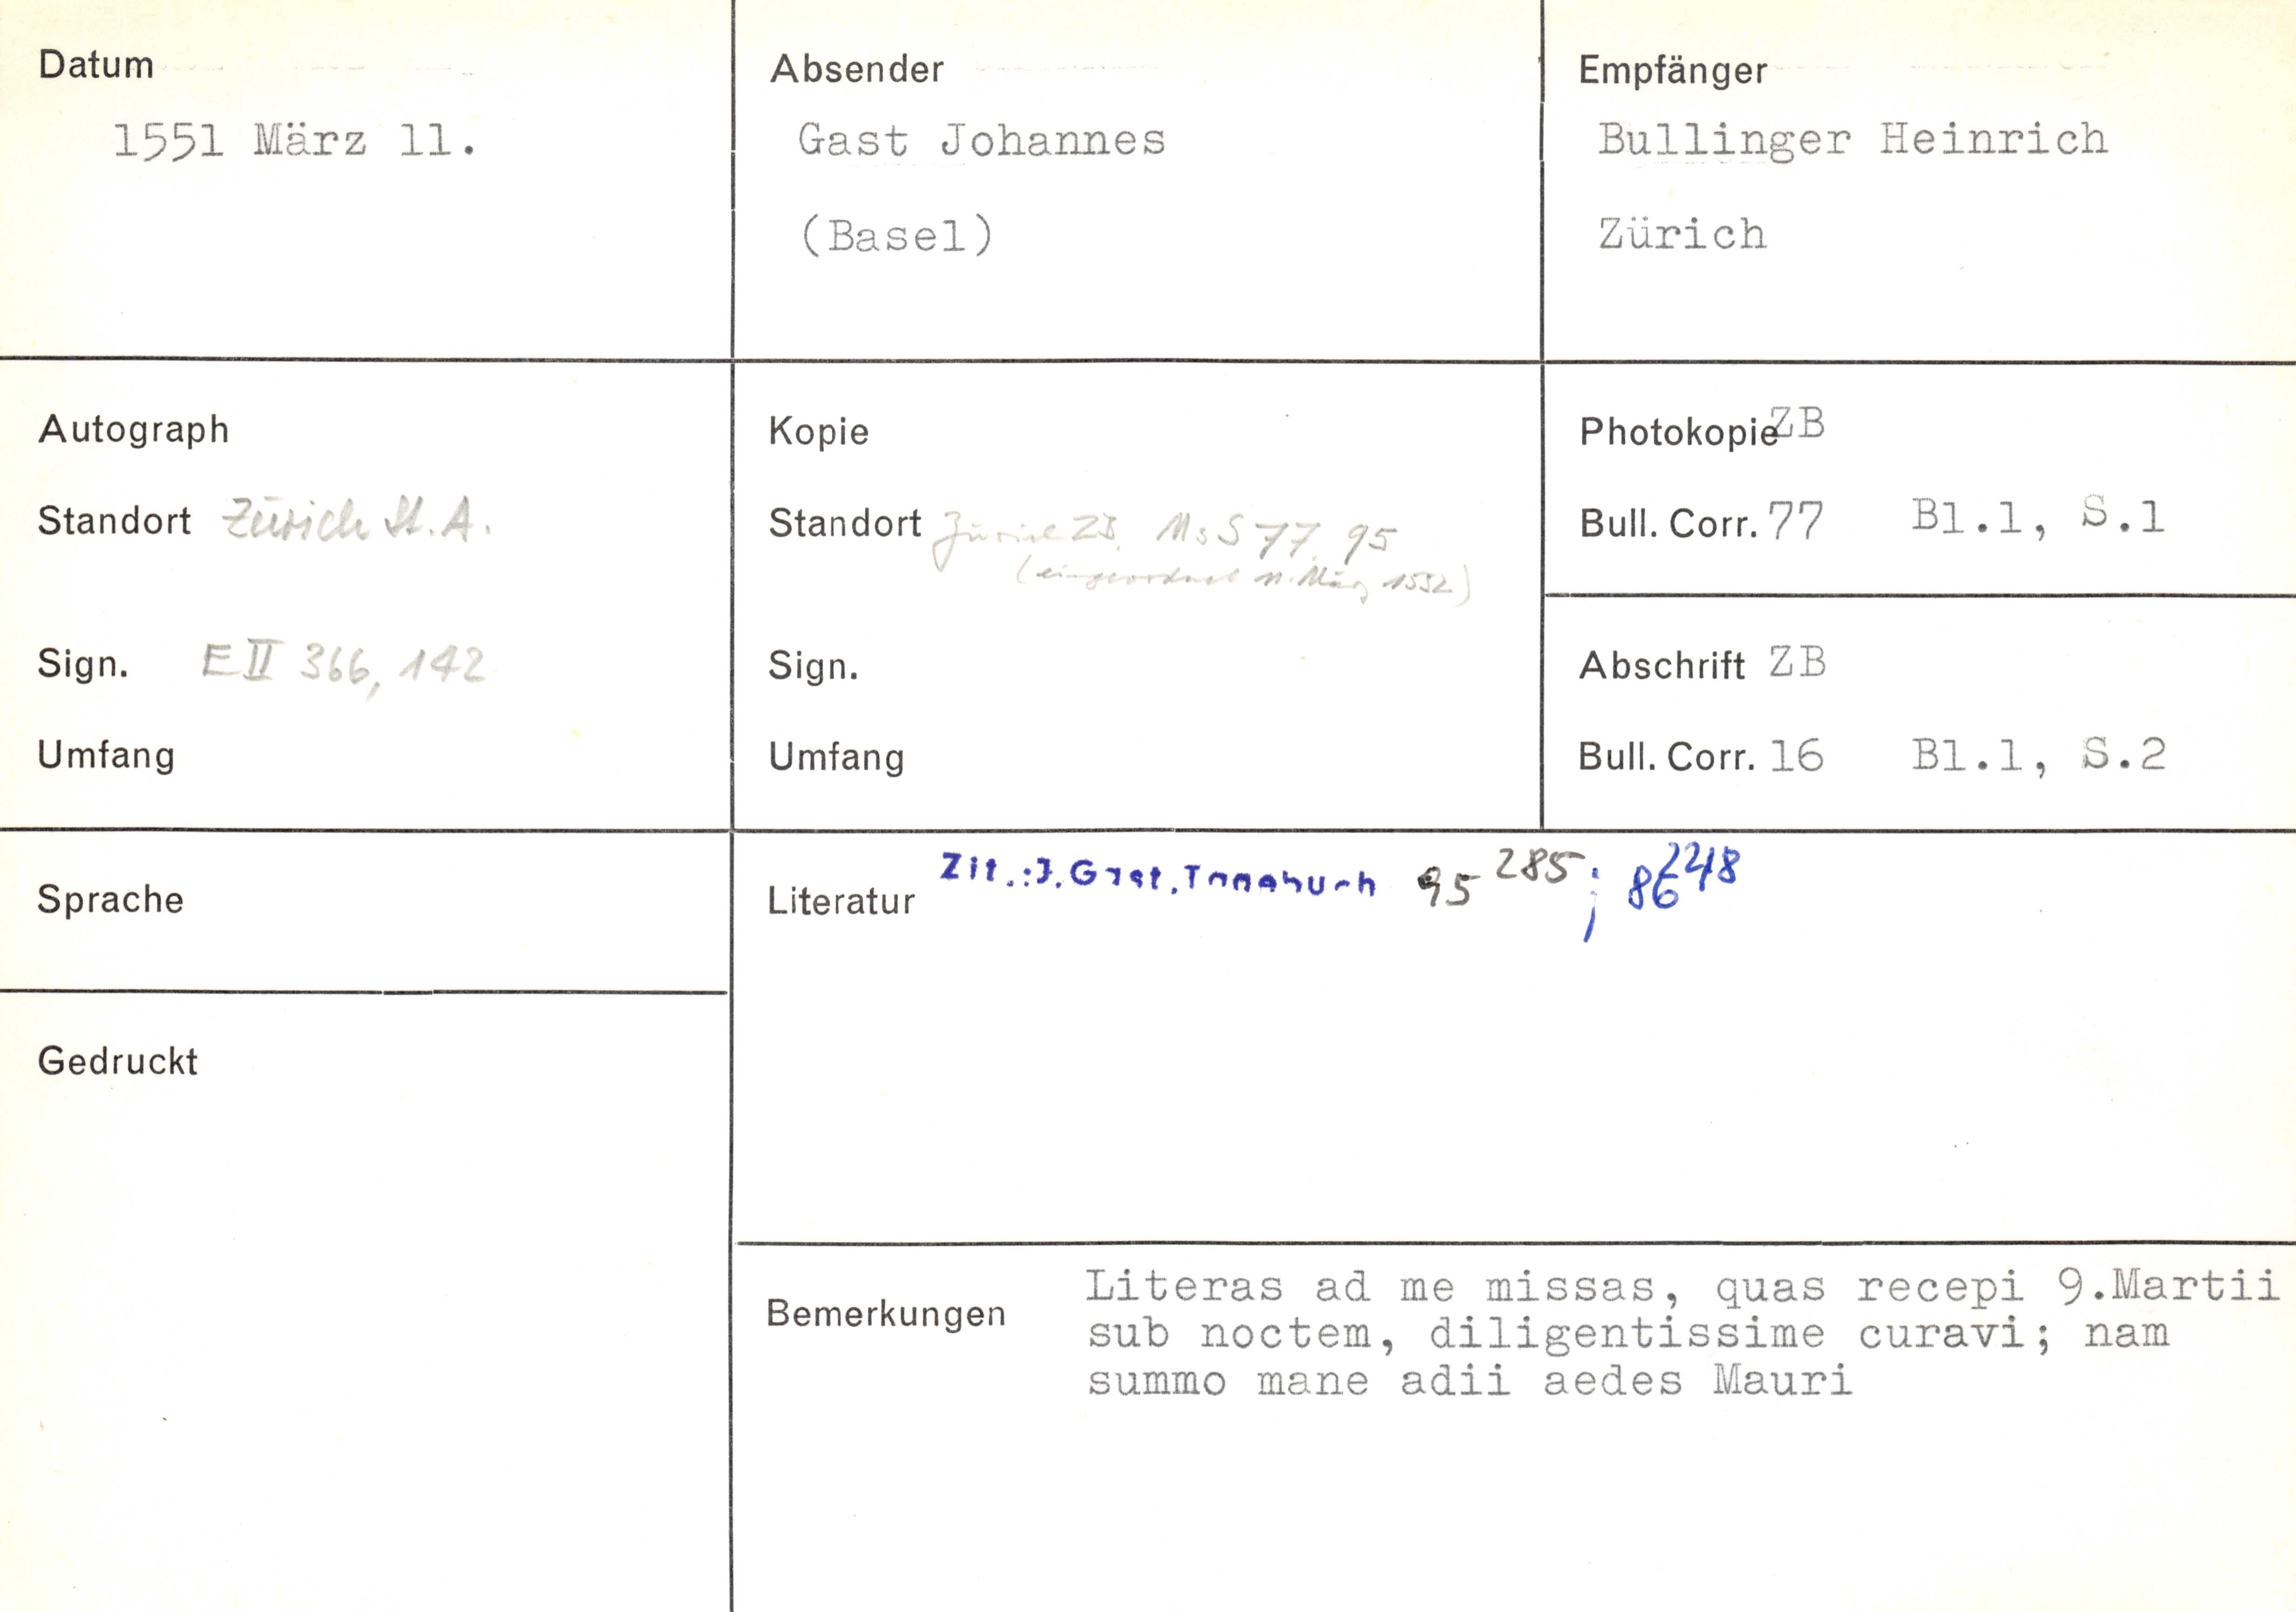 Datum
1551 März 11.
Absender
Gast Johannes
(Basel)
Empfänger
Bullinger Heinrich
Zürich
Autograph
Standort Zürich St.A.
Sign. E II 366, 142
Umfang
Kopie
Standort Zürich ZB. Ms S 77, 95
(eingeordnet 11. März 1552)
Sign.
Umfang
Photokopie ZB
Bull. Corr. 77 Bl.1, S.1
Abschrift ZB
Bull. Corr. 16 Bl.1, S.2
Sprache
Gedruckt
Literatur Zit.: J. Gast, Tagebuch 95 285; 86 248
Bemerkungen
Literas ad me missas, quas recepi 9.Martii
sub noctem, diligentissime curavi; nam
summo mane adii aedes Mauri